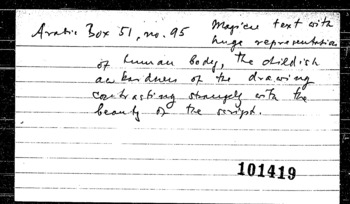 Arabic Box 51, no. 95 Magical text with
huge representation
of human body, the childish
awkardness of the drawing
contrasting strangely with the
beauty of the script.
101419